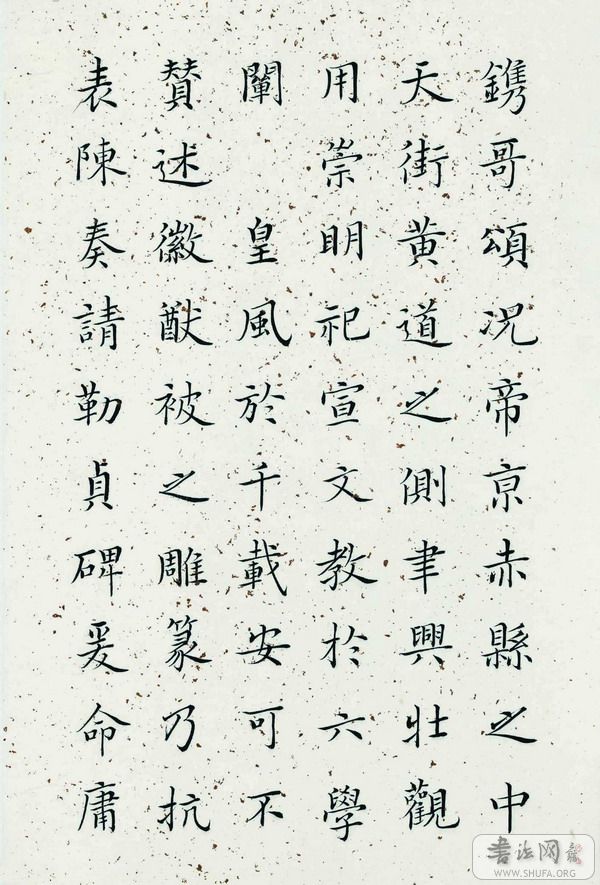 鐫哥頌況帝京赤縣之中
天街黄道之側聿興壯觀
用崇明祀宣文教於六學
闡皇風於千載安可不
贊述徽猷被之雕篆乃抗
表陳奏請勒貞碑爰命庸
書法网
WWW.SHUFA.ORG